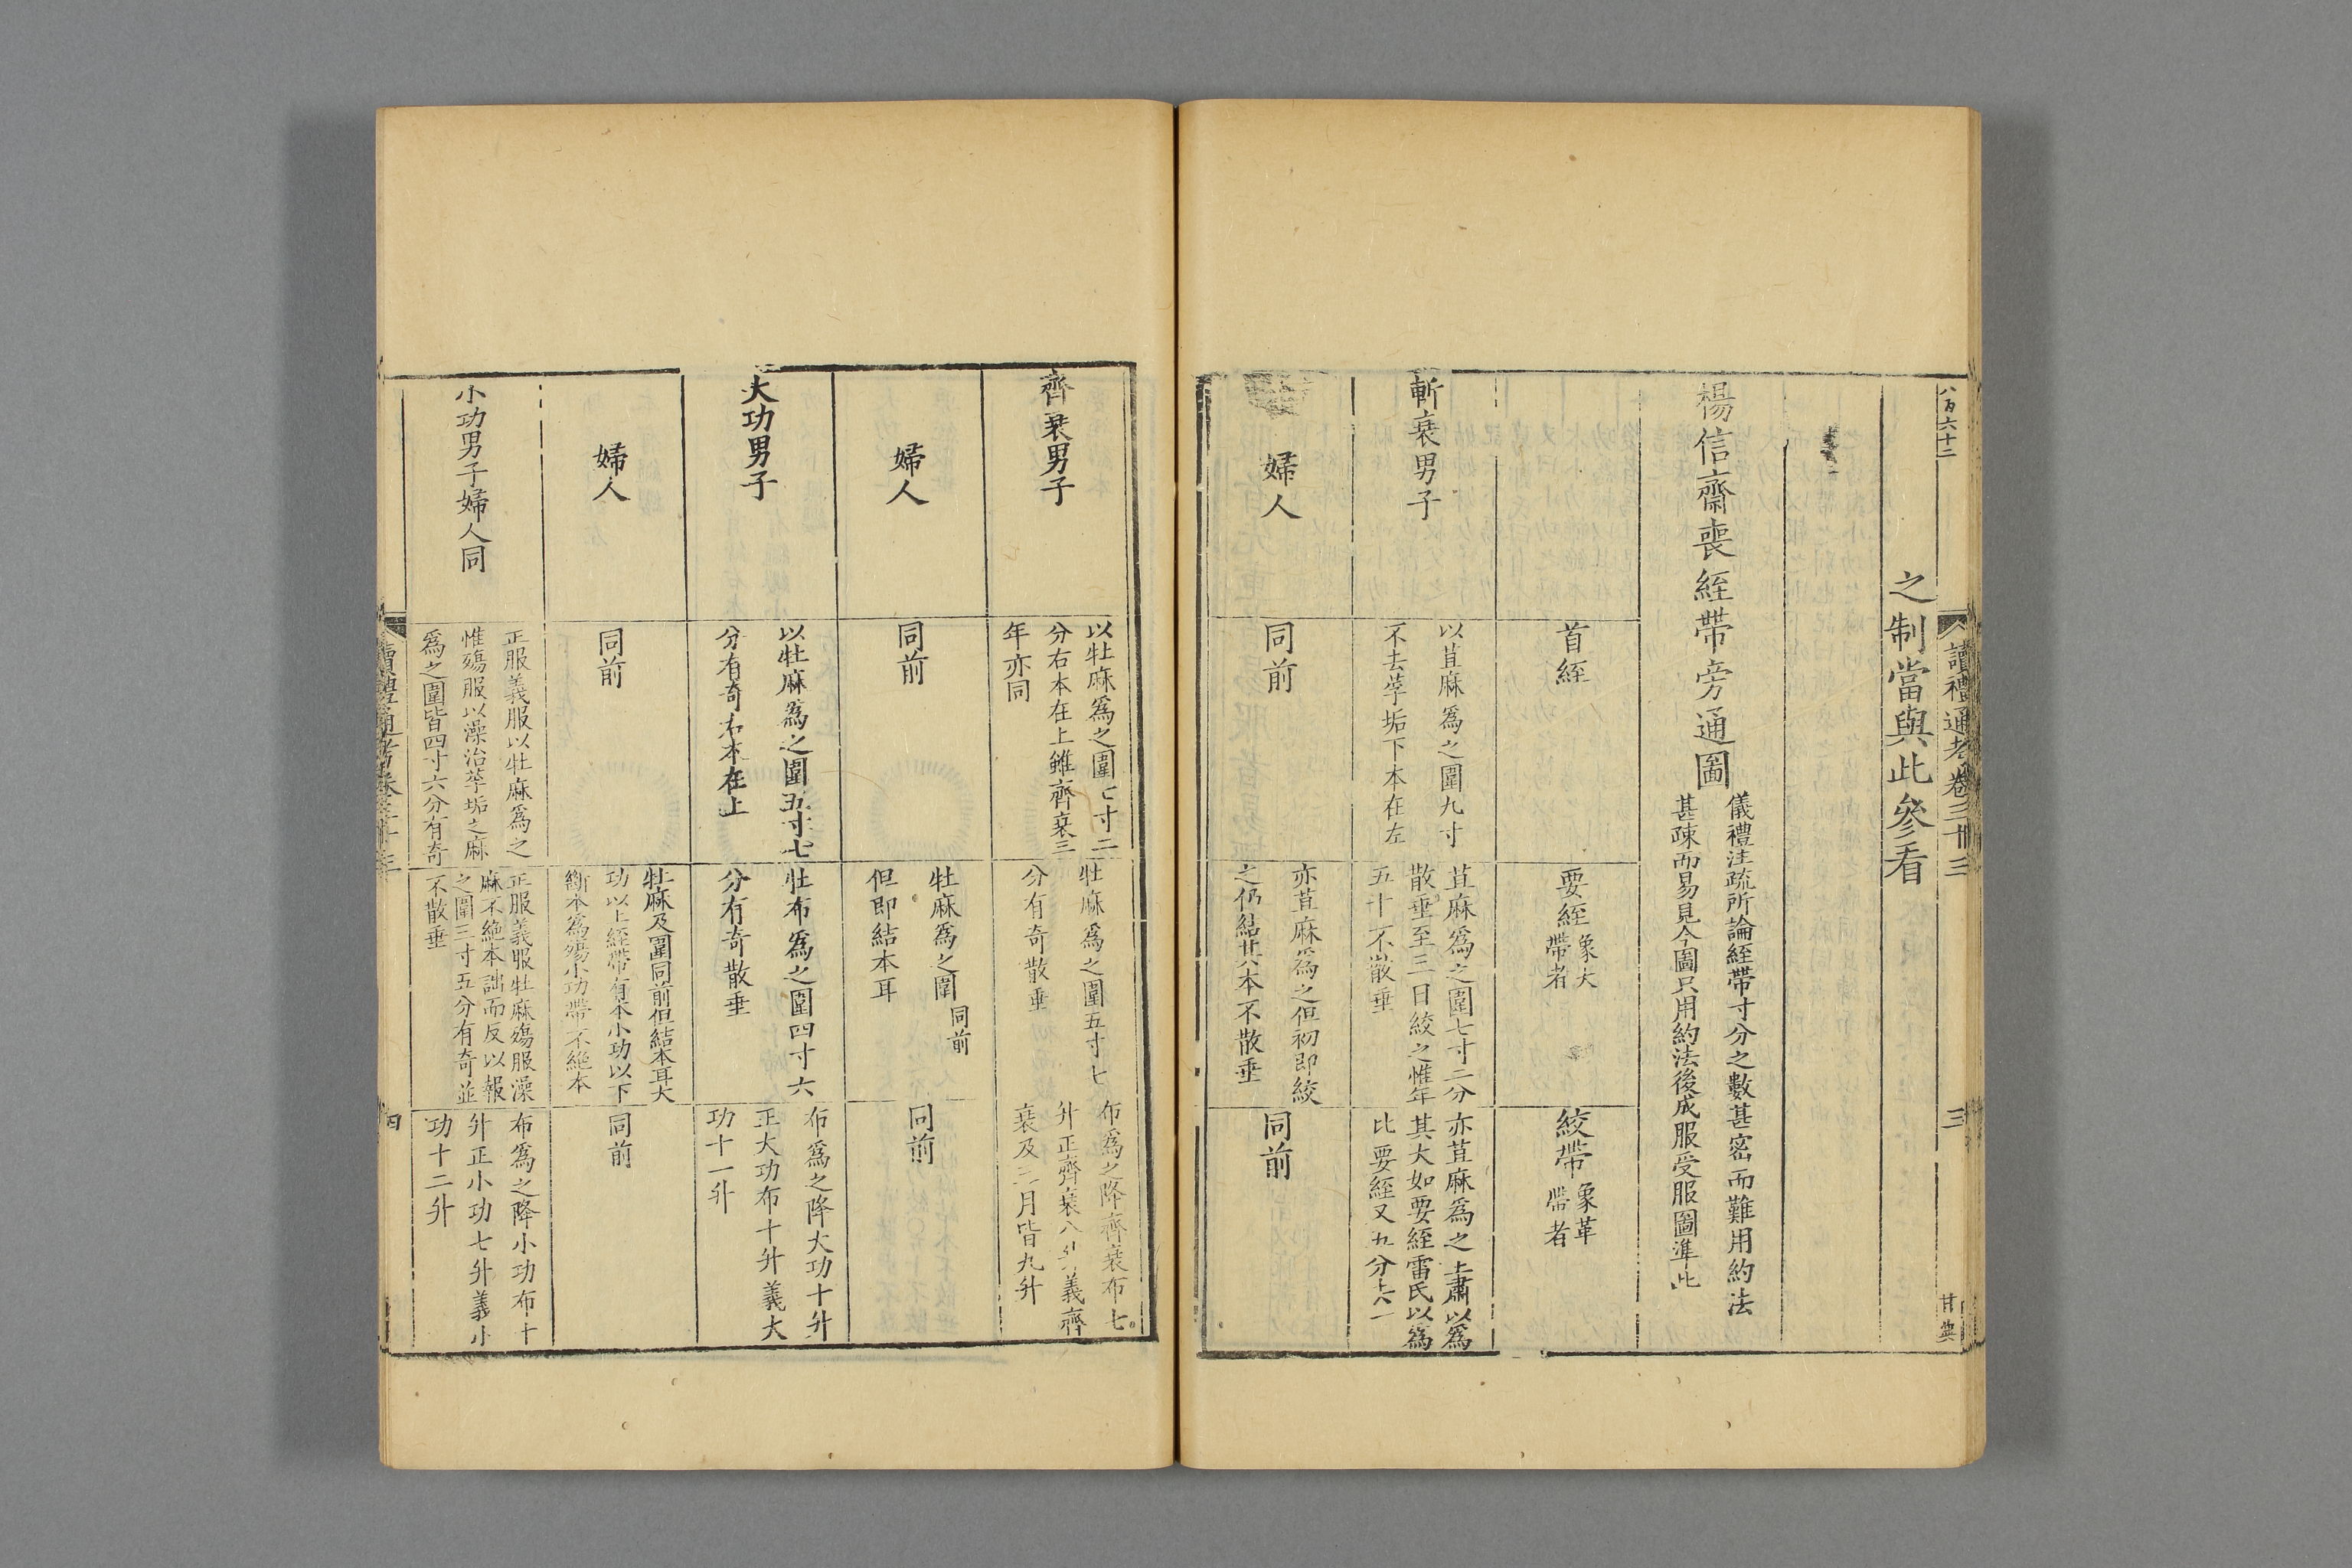 八百六十二
讀禮通考卷三十三
三
甘典
之制當與此參看
楊信齋喪絰帶旁通圖
儀禮注疏所論絰帶寸分之數甚密而難用約法
甚疎而易見今圖只用約法後成服受服圖準此
首絰
要絰
象大
帶者
絞帶
象革
帶者
斬衰男子
以苴麻爲之圍九寸
不去莩垢下本在左
苴麻爲之圍七寸二分
散垂至三日絞之惟年
五十不散垂
亦苴麻爲之王肅以爲
其大如要絰雷氏以爲
比要絰又五分去一
婦人
同前
亦苴麻爲之但初即絞
之仍結其本不散垂
同前
齊衰男子
以牡麻爲之圍七寸二
分右本在上雖齊衰三
年亦同
牡麻爲之圍五寸七
分有奇散垂
布爲之降齊衰布七
升正齊衰八升義齊
衰及三月皆九升
婦人
同前
牡麻爲之圍同前
但即結本耳
同前
大功男子
以牡麻爲之圍五寸七
分有奇右本在上
牡布爲之圍四寸六
分有奇散垂
布爲之降大功十升
正大功布十升義大
功十一升
婦人
同前
牡麻及圍同前但結本耳大
功以上絰帶有本小功以下
斷本爲殤小功帶不絶本
同前
小功男子婦人同
正服義服以牡麻爲之
惟殤服以澡治莩垢之麻
爲之圍皆四寸六分有奇
正服義服牡麻殤服澡
麻不絶本詘而反以報
之圍三寸五分有奇並
不散垂
布爲之降小功布十
升正小功七升義小
功十二升
讀禮通考卷三十三
四